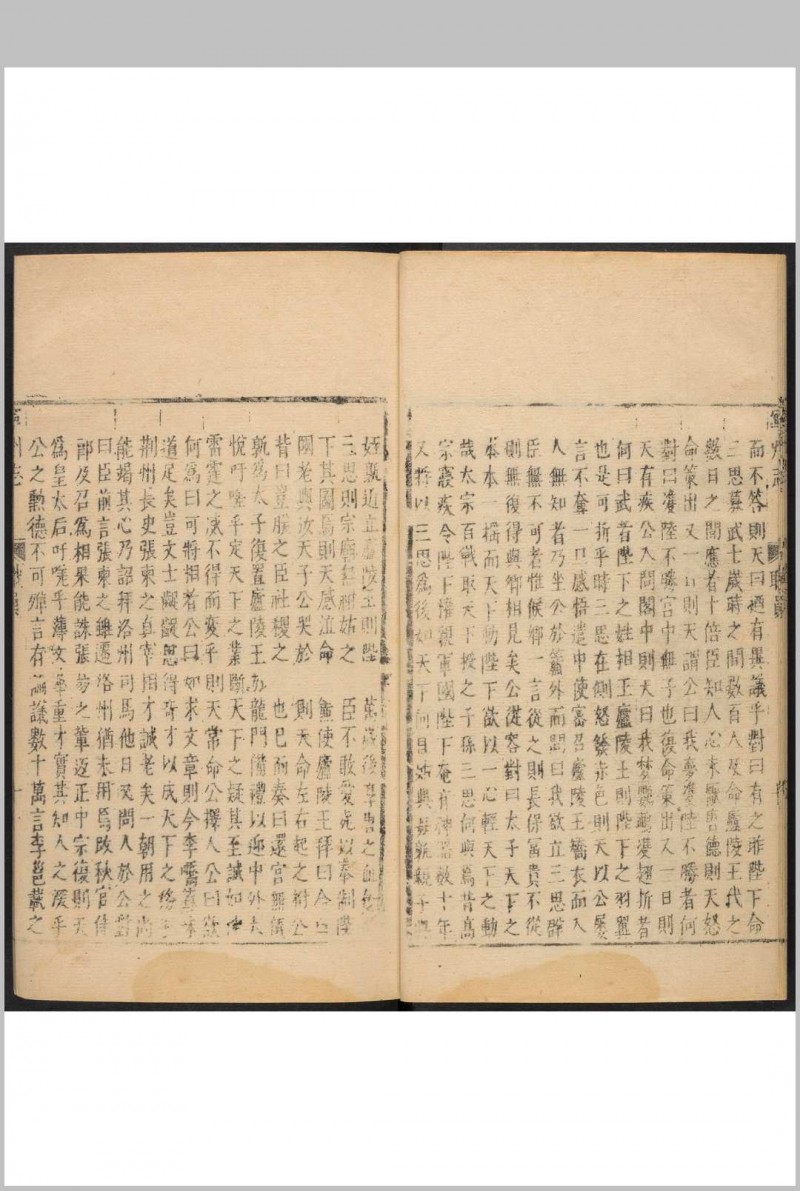 而不答則天曰適有異議乎對曰有之昨陛下命
三思募武士歲時之間數百人及命廬陵王代之
數日之間應者十倍臣知人心未厭唐德則天怒
命策出又一日則天謂公曰我夢雙陸不勝者何
對曰雙陸不勝宮中無子也復命策出又一日則
天有疾公入問閣中則天曰我夢鸚鵡雙翅折者
何曰武者陛下之姓相王廬陵王則陛下之羽翼
也是可折乎時三思在側怒發赤色則天以公屡
言不奪一旦感悟遣中使密召廬陵王矯衣而入
人無知者乃坐公於簾外而問曰我欲立三思群
臣無不可者惟候卿一言從之則長保富貴不從
則無復得與卿相見矣公從容對曰太子天下之
本本一摇而天下動陛下欲以一心輕天下之動
哉太宗百戰取天下授之子孫三思何與焉昔高
宗寢疾令陛下權親軍國陛下奄有神器數十年
又將以三思為後如天下何且姑與母孰親子與
姪孰近立廬陵王則陛下萬歲後享唐之血食
三思則宗廟無祔姑之臣不敢愛死以奉制陛
下其圖焉則天感泣命使廬陵王拜曰今日
國老與汝天子公哭於則天命左右起之拊公
背曰豈朕之臣社稷之也已而奏曰還宮無儀
孰為太子復置廬陵王於龍門備禮以迎中外大
悅吁嗟乎定天下之業斷天下之疑其至誠如神
雷霆之威不得而變乎則天常命公擇人公曰欲
何為曰可將相者公曰如求文章則今李嶠蘇味
道足矣豈文士齷齪思得奇才以成天下之務乎
荆州長史張柬之真宰相才誠老矣一朝用之尚
能竭其心乃詔拜洛州司馬他日又問人於公對
曰臣前言張柬之雖遷洛州猶未用焉改秋官侍
郎及召為相果能誅張易之輩返正中宗復則天
為皇太后吁嗟乎薄文華重才實其知人之深乎
公之勳德不可殫言有論議數十萬言李邕載之